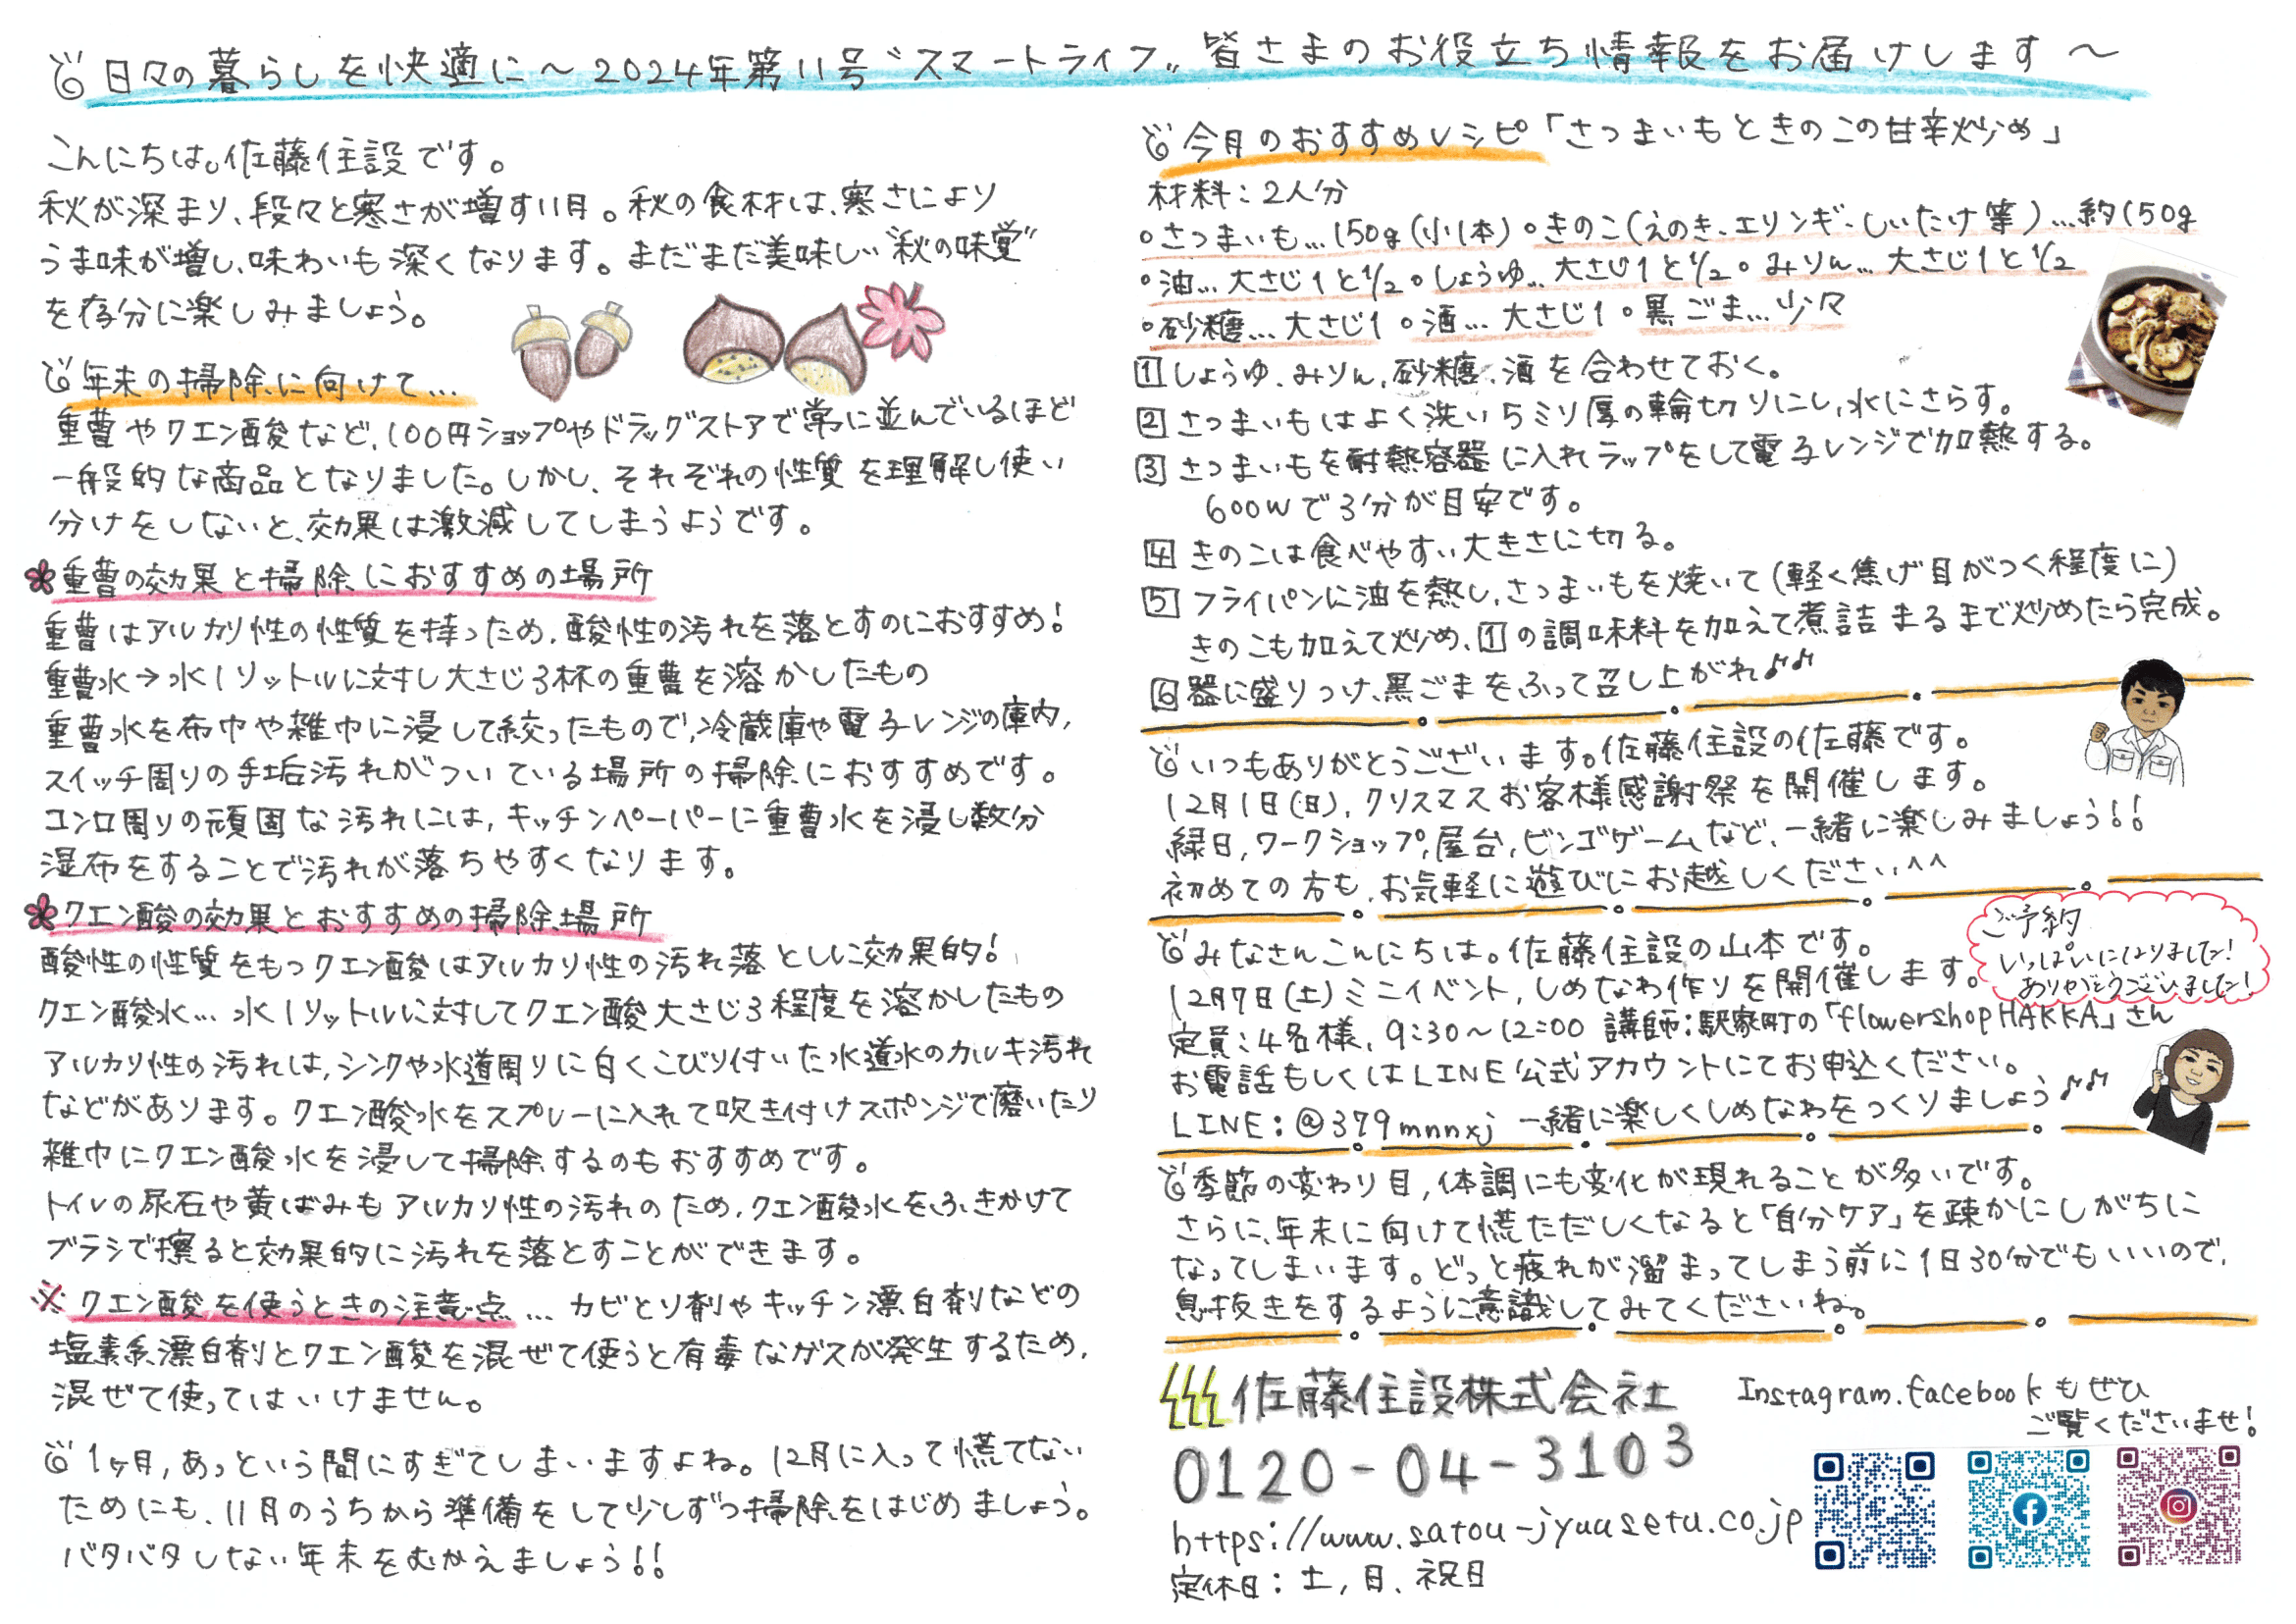 日々の暮らしを快適に～2024年第11号〝スマートライフ〟皆さまのお役立ち情報をお届けします～
こんにちは。佐藤住設です。
秋が深まり、段々と寒さが増す11月。秋の食材は、寒さにより
うま味が増し、味わいも深くなります。まだまだ美味しい〝秋の味覚〟
を存分に楽しみましょう。
年末の掃除に向けて…
重曹やクエン酸など、100円ショップやドラッグストアで常に並んでいるほど
一般的な商品となりました。しかし、それぞれの性質を理解し使い
分けをしないと、効果は激減してしまうようです。
重曹の効果と掃除におすすめの場所
重曹はアルカリ性の性質を持つため、酸性の汚れを落とすのにおすすめ！
重曹水→水1リットルに対し大さじ3杯の重曹を溶かしたもの
重曹水を布巾や雑巾に浸して絞ったもので、冷蔵庫や電子レンジの庫内、
スイッチ周りの手垢汚れがついている場所の掃除におすすめです。
コンロ周りの頑固な汚れには、キッチンペーパーに重曹水を浸し数分
湿布をすることで汚れが落ちやすくなります。
クエン酸の効果とおすすめの掃除場所
酸性の性質をもつクエン酸はアルカリ性の汚れ落としに効果的！
クエン酸水…水1リットルに対してクエン酸大さじ3程度を溶かしたもの
アルカリ性の汚れは、シンクや水道周りに白くこびり付いた水道水のカルキ汚れ
などがあります。クエン酸水をスプレーに入れて吹き付けスポンジで磨いたり
雑巾にクエン酸水を浸して掃除するのもおすすめです。
トイレの尿石や黄ばみもアルカリ性の汚れのため、クエン酸水をふきかけて
ブラシで擦ると効果的に汚れを落とすことができます。
※クエン酸を使うときの注意点…カビとり剤やキッチン漂白剤などの
塩素系漂白剤とクエン酸を混ぜて使うと有毒なガスが発生するため、
混ぜて使ってはいけません。
1ヶ月、あっという間にすぎてしまいますよね。12月に入って慌てない
ためにも、11月のうちから準備をして少しずつ掃除をはじめましょう。
バタバタしない年末をむかえましょう！！
今月のおすすめレシピ「さつまいもときのこの甘辛炒め」
材料：2人分
◦さつまいも…150g(小1本)◦きのこ(えのき、エリンギ、しいたけ等)…約150g
◦油…大さじ1と1/2◦しょうゆ…大さじ1と1/2◦みりん…大さじ1と1/2
◦砂糖…大さじ1◦酒…大さじ1◦黒ごま…少々
1 しょうゆ、みりん、砂糖、酒を合わせておく。
2 さつまいもはよく洗い5ミリ厚の輪切りにし、水にさらす。
3 さつまいもを耐熱容器に入れラップをして電子レンジで加熱する。
600Wで3分が目安です。
4 きのこは食べやすい大きさに切る。
5 フライパンに油を熱し、さつまいもを焼いて(軽く焦げ目がつく程度に)
きのこも加えて炒め、1の調味料を加えて煮詰まるまで炒めたら完成。
6 器に盛りつけ、黒ごまをふって召し上がれ♪♪
いつもありがとうございます。佐藤住設の佐藤です。
12月1日(日)、クリスマスお客様感謝祭を開催します。
縁日、ワークショップ、屋台、ビンゴゲームなど、一緒に楽しみましょう！！
初めての方も、お気軽に遊びにお越しください^^
みなさんこんにちは。佐藤住設の山本です。
12月7日(土)ミニイベント、しめなわ作りを開催します。
ご予約
いっぱいになりました！
ありがとうございました！
定員：4名様、9:30～12:00 講師：駅家町の「flowershop HAKKA」さん
お電話もしくはLINE公式アカウントにてお申込ください。
LINE：@379mnnxj 一緒に楽しくしめなわをつくりましょう♪♪
季節の変わり目、体調にも変化が現れることが多いです。
さらに、年末に向けて慌ただしくなると「自分ケア」を疎かにしがちに
なってしまいます。どっと疲れが溜まってしまう前に1日30分でもいいので、
息抜きをするように意識してみてくださいね。
佐藤住設株式会社
Instagram.facebookもぜひ
ご覧くださいませ！
0120-04-3103
https://www.satou-jyuusetu.co.jp
定休日：土、日、祝日